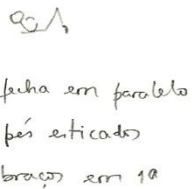 fecha em paralelo
pés esticados
braços em 1ª